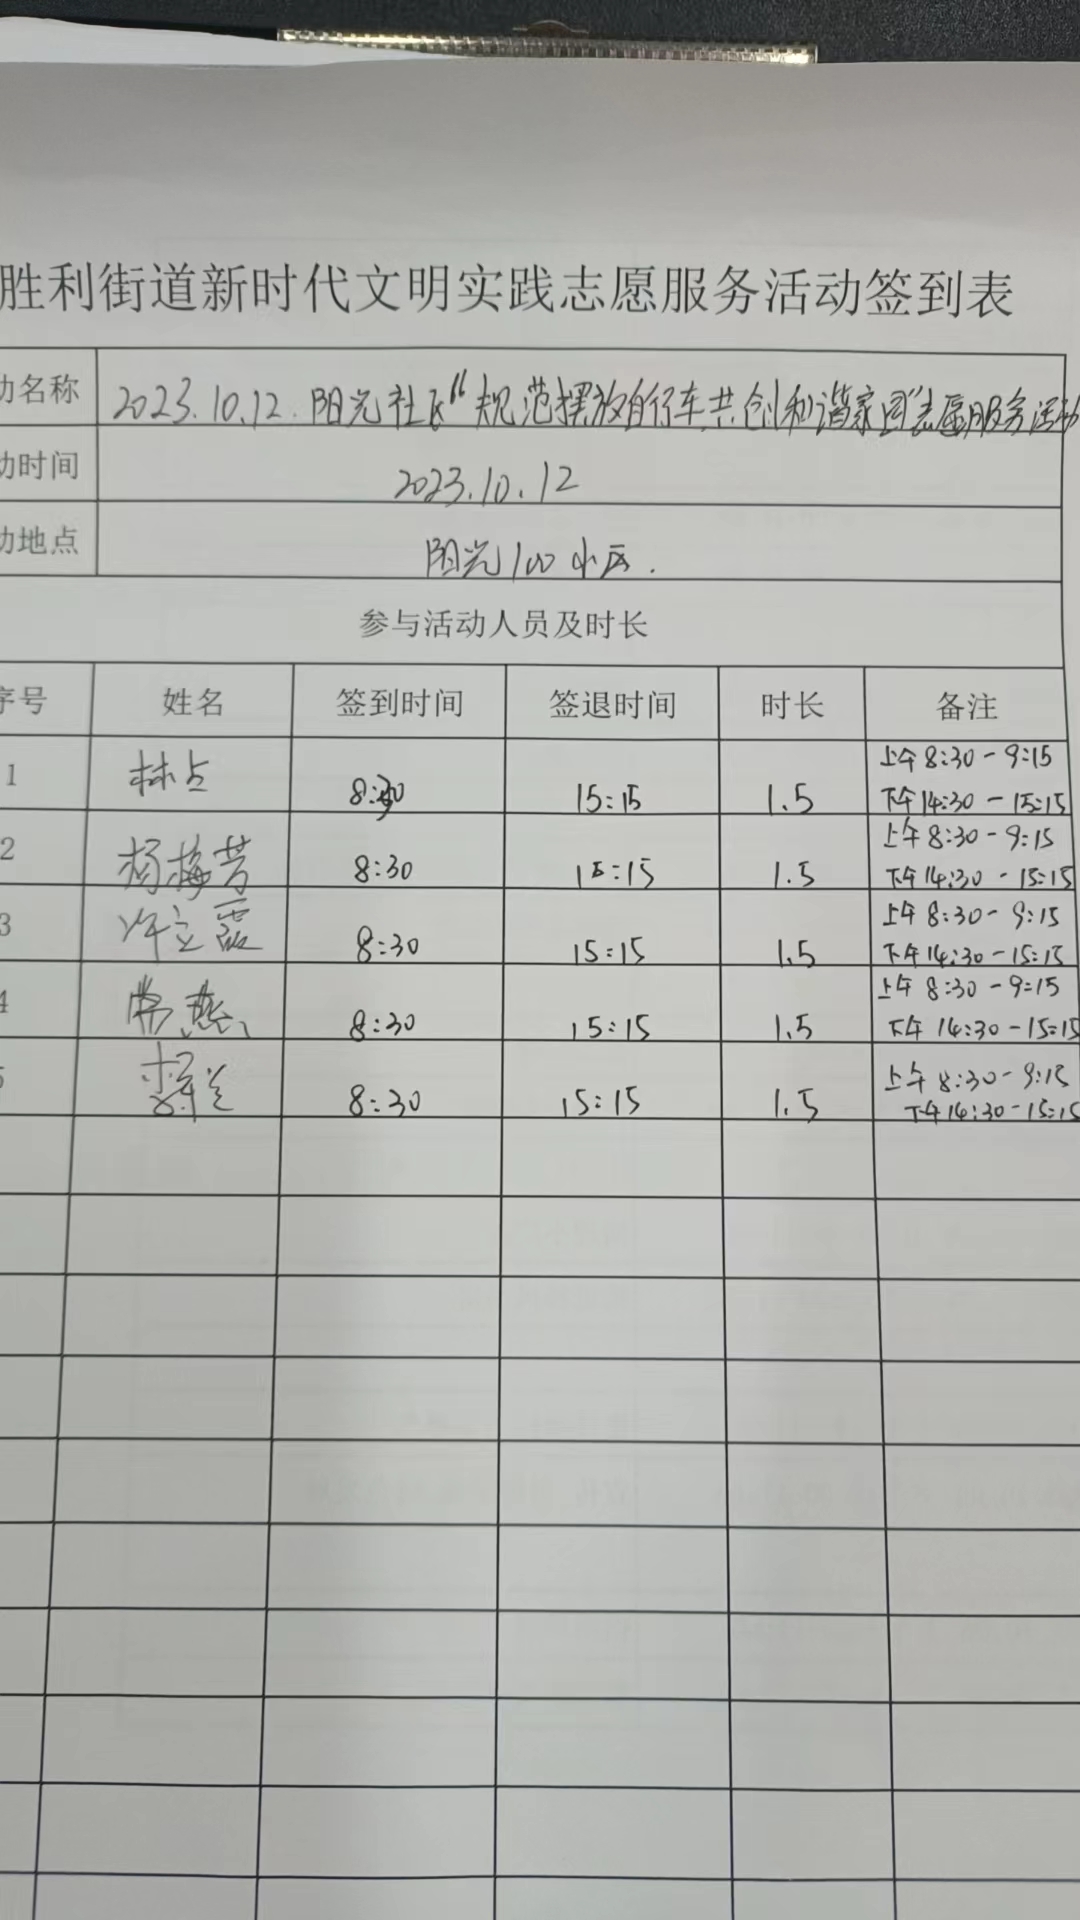 胜利街道新时代文明实践志愿服务活动签到表
动名称 2023.10.12.阳光社区“规范摆放自行车,共创和谐家园”志愿服务活动
动时间 2023.10.12
动地点 阳光100小区.
参与活动人员及时长
序号 姓名 签到时间 签退时间 时长 备注
1 8:30 15:15 1.5 上午8:30-9:15
下午14:30-15:15
2 杨梅芳 8:30 15:15 1.5 上午8:30-9:15
下午14:30-15:15
3 许立霞 8:30 15:15 1.5 上午8:30-9:15
下午14:30-15:15
4 常燕 8:30 15:15 1.5 上午8:30-9:15
下午14:30-15:15
5 8:30 15:15 1.5 上午8:30-9:15
下午14:30-15:15